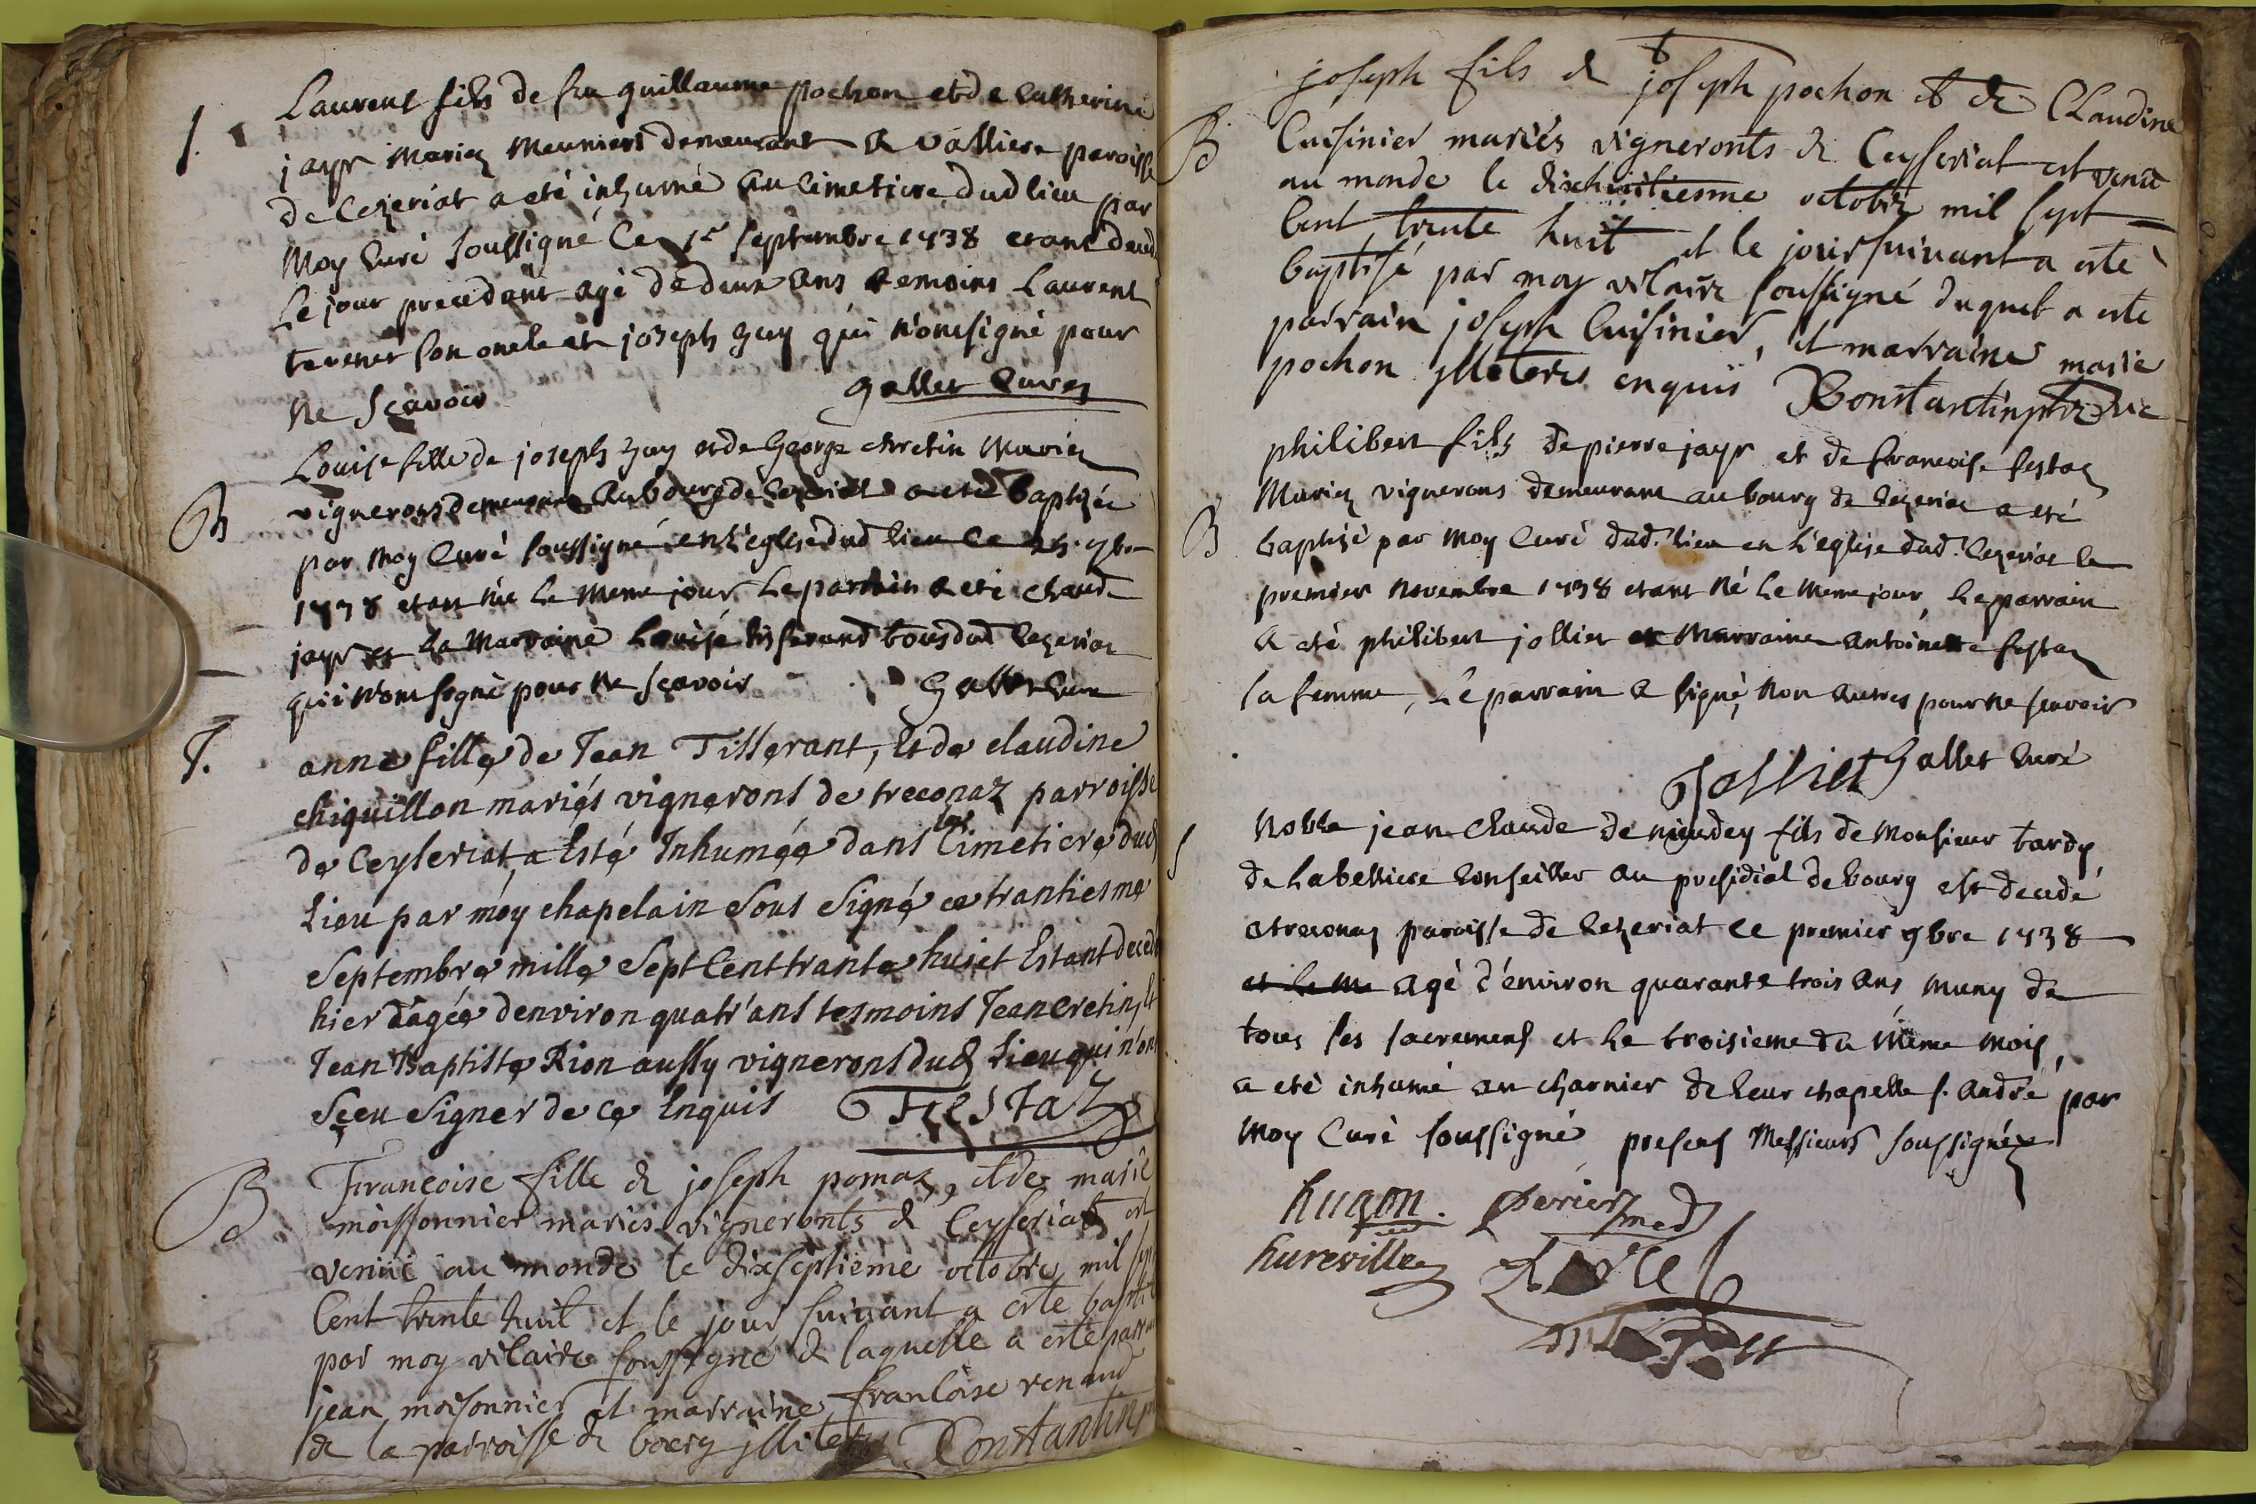 S.
Laurent fils de feu guillaume pochon et de Catherine
jayr Mariez Meuniers demeurant a valliere paroisse
de Cezeriat a eté inhumé au Cimetiere dud lieu par
Moy Curé soussigné Ce 1er septembre 1738 etant deced
Le jour precedent agé de deux ans temoins Laurent
tevenet son oncle et joseph guy qui n'ont signé pour
Ne sçavoir
gallet Curé
B
Louise fille de joseph guy et de George chretin Mariez
vignerons demeurant au bourg de Cezeriat a eté baptizée
par Moy Curé soussigné en L'eglise dud lieu Ce 25 7bre
1738 etant née Le meme jour Le parrain a eté Claude
jayr et La Marraine Louise tisserand tous dud Cezeriat
qui n'ont signé pour Ne sçavoir
Gallet Curé
J.
anne fille de Jean Tisserant, et de claudine
chiquillon mariés vignerons de treconaz parroisse
de Ceyseriat a Esté Inhumée dans le Cimetiere dud
Lieu par moy chapelain sous signé ce trantiesme
septembre mille sept Cent trante huict Estant deced
hier âagée denviron quatr'ans tesmoins Jean Cretin, Et
Jean Baptiste Rion aussy vignerons dud Lieu qui n'on
sçeu signer de ce Enquis
FESTAZ
B
Françoise fille de joseph pomaz, et de marie
moissonnier mariés vigneronts de Ceyseriat est
venue au monde le dixseptieme octobre mil sep
Cent trente huit et le jour suivant a esté bapti
par moy vicaire soussigné de laquelle a esté parrain
jean moisonnier et marraine francoise renaud
de la parroisse de bourg illiteres Constantin
B
joseph fils de joseph pochon et de Claudine
Cuisinier mariés vigneronts de Ceyseriat est venu
au monde le dixhuitiesme octobre mil sept
Cent trente huit et le jour suivant a esté
baptisé par moy vicaire soussigné duquel a esté
parrain joseph Cuisinier, et marraine marie
pochon illiteres enquis Constantin ptre vic
B
philibert fils de pierre jayr et de francoise festaz
Mariez vignerons demeurant au bourg de Cezeriat a eté
baptizé par Moy Curé dud. Lieu en L'eglise dud. Cezeriat le
premier Novembre 1738 etant Né Le meme jour, Le parrain
a eté philibert jolliet et Marraine antoinette festaz
sa femme, Le parrain a signé, Non autres pour ne sçavoir
Jolliet Gallet Curé
S
Noble jean Claude de fils de Monsieur tardy
de Labelliere Conseiller au presidial de bourg est decedé
a treconaz paroisse de Cezeriat Ce premier 9bre 1738
et Le me agé d'environ quarante trois ans muny de
tous ses sacremens et Le troisieme du Même mois,
a eté inhumé au charnier de Leur chapelle s. andré par
Moy Curé soussigné presens Messieurs soussignéz
hugon. perier med
hureville